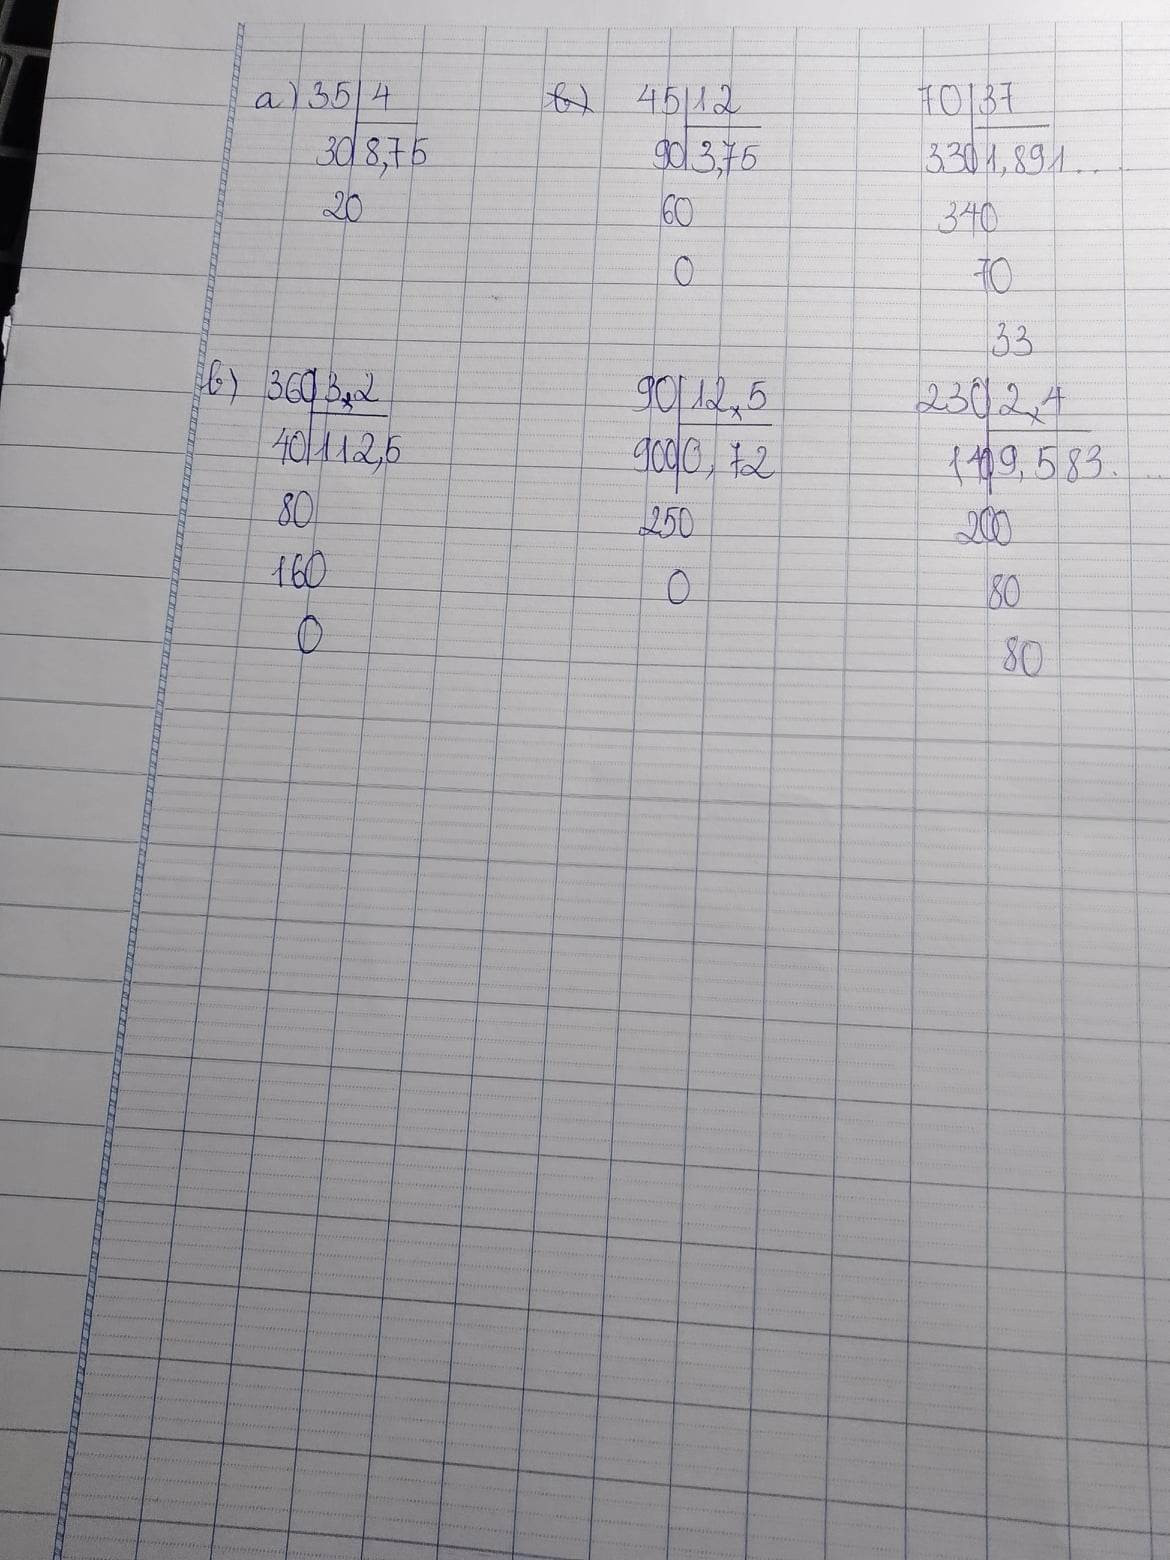 a) 35 4 45 12 70 37
30 8,75 90 3,75 330 1,891...
20 60 340
0 70
33
b) 360 3,2 90 12,5 230 2,4
40 112,5 900 0,72 140 9,583...
80 250 200
160 0 80
0 80